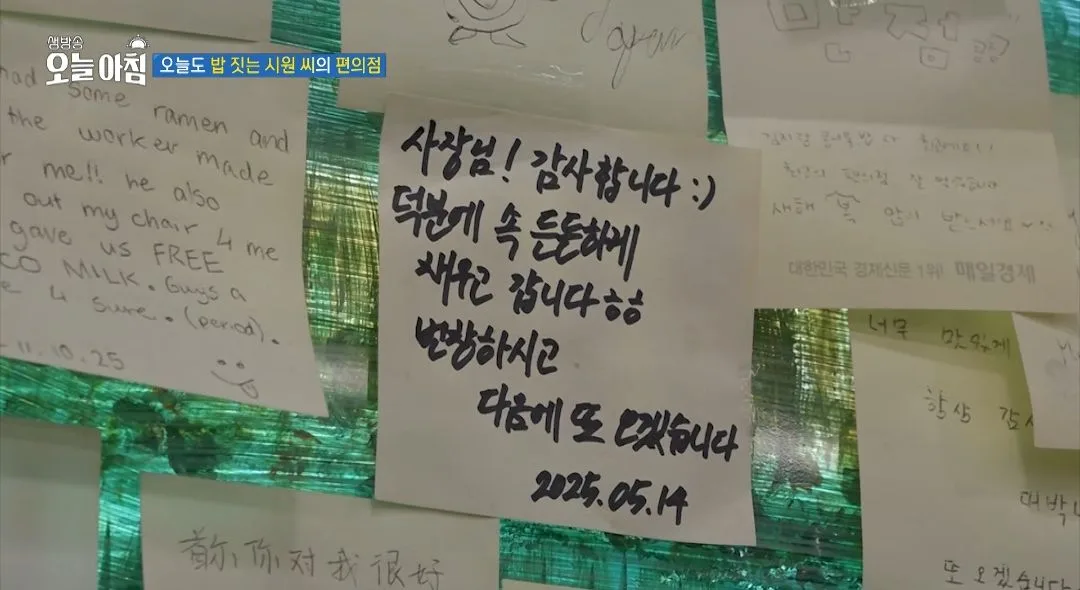 생방송
오늘 아침
오늘도 밥 짓는 시원 씨의 편의점
had some ramen and
the worker made
me!! he also
out my chair 4 me
gave us FREE
CO MILK. Guys a
4 sure. (period).
11.10.25
사장님! 감사합니다 :)
덕분에 속 든든하게
채우고 갑니다 ㅎㅎ
번창하시고
다음에 또 오겠습니다
2025.05.14
새해 복 많이 받으세요
대한민국 경제신문 1위! 매일경제
너무 맛있게
항상 감사
대박나
또 오겠습니다
首尔你对我很好